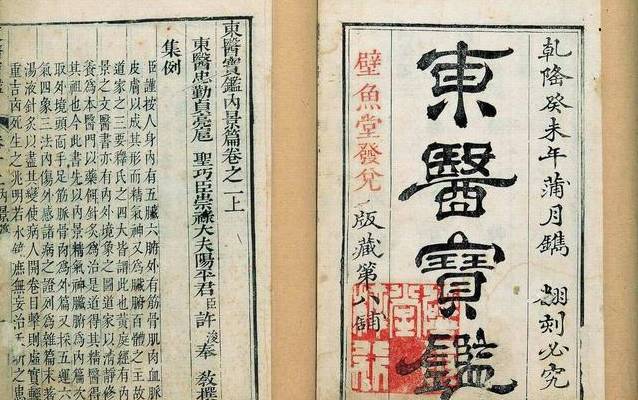 乾隆癸未年蒲月鐫 翻刻必究
東醫寶鑑
壁魚堂發兌
版藏第八鋪
東醫寶鑑內景篇卷之一上
東醫忠勤貞亮扈 聖功臣崇祿大夫陽平君臣許浚奉 教撰
集例
臣謹按人身內有五臟六腑外有筋骨肌肉血脉
皮膚以成其形而精氣神又為臟腑百體之主故
道家之三要釋氏之四大皆謂此也黃庭經有內
景之文醫書亦有內外境象之圖道家以清靜修
養為本醫門以藥餌針灸為治是道得其精醫得
其粗也今此書先以內景精氣神臟腑為內篇次
取外境頭面手足筋脉骨肉為外篇又採五運六
氣四象三法內傷外感諸病之證列為雜篇末著
湯液針灸以盡其變使病人開卷目擊則虛實輕
重吉凶死生之兆明若水鏡庶無妄治夭折之患